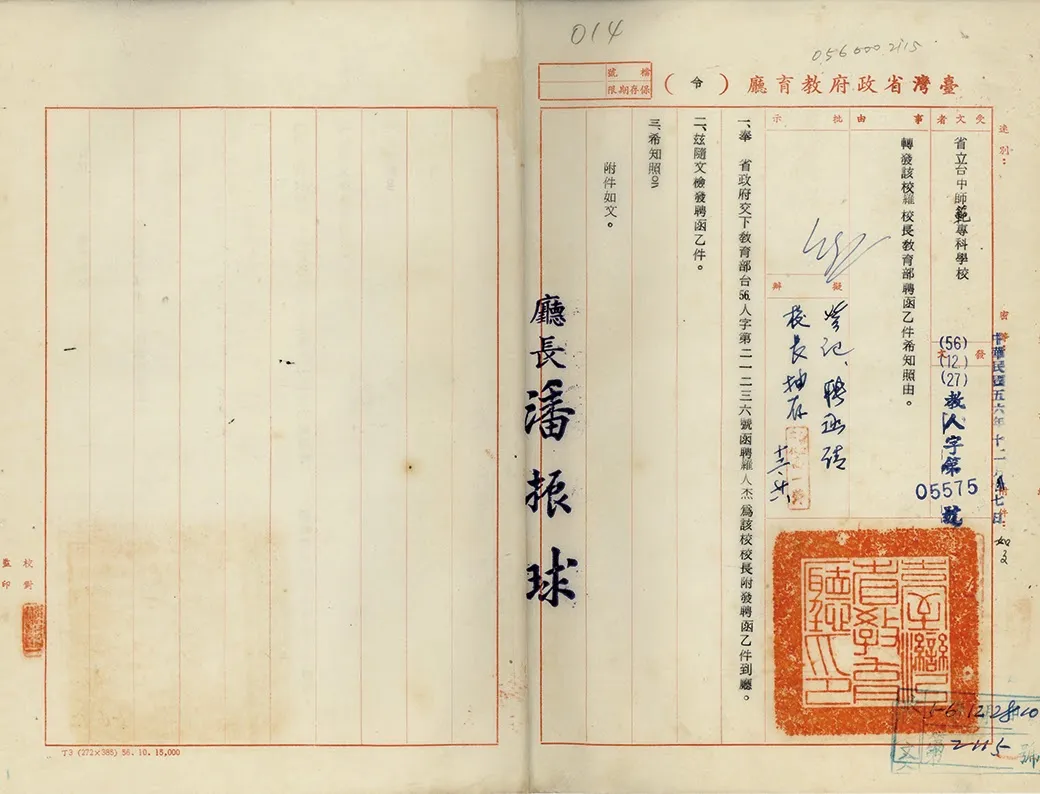 014
056000 2115
臺灣省政府教育廳(令)
檔號
保存期限
速別:
密等
受文者
省立台中師範專科學校
發文
中華民國五六年十二月廿七日
(56)
(12)
(27)
教人字第
05575
號
附件:如文
事由
轉發該校羅校長教育部聘函乙件希知照由。
批示
擬辦
登記、聘函請
校長抽存
一、奉 省政府交下教育部台56.人字第二一二三六號函聘羅人杰為該校校長附發聘函乙件到廳。
二、茲隨文檢發聘函乙件。
三、希知照。
附件如文。
廳長潘振球
臺灣省政府教育廳印
文
56 12 28
第2115號
校對
監印
T3 (272×385) 56. 10. 15,000